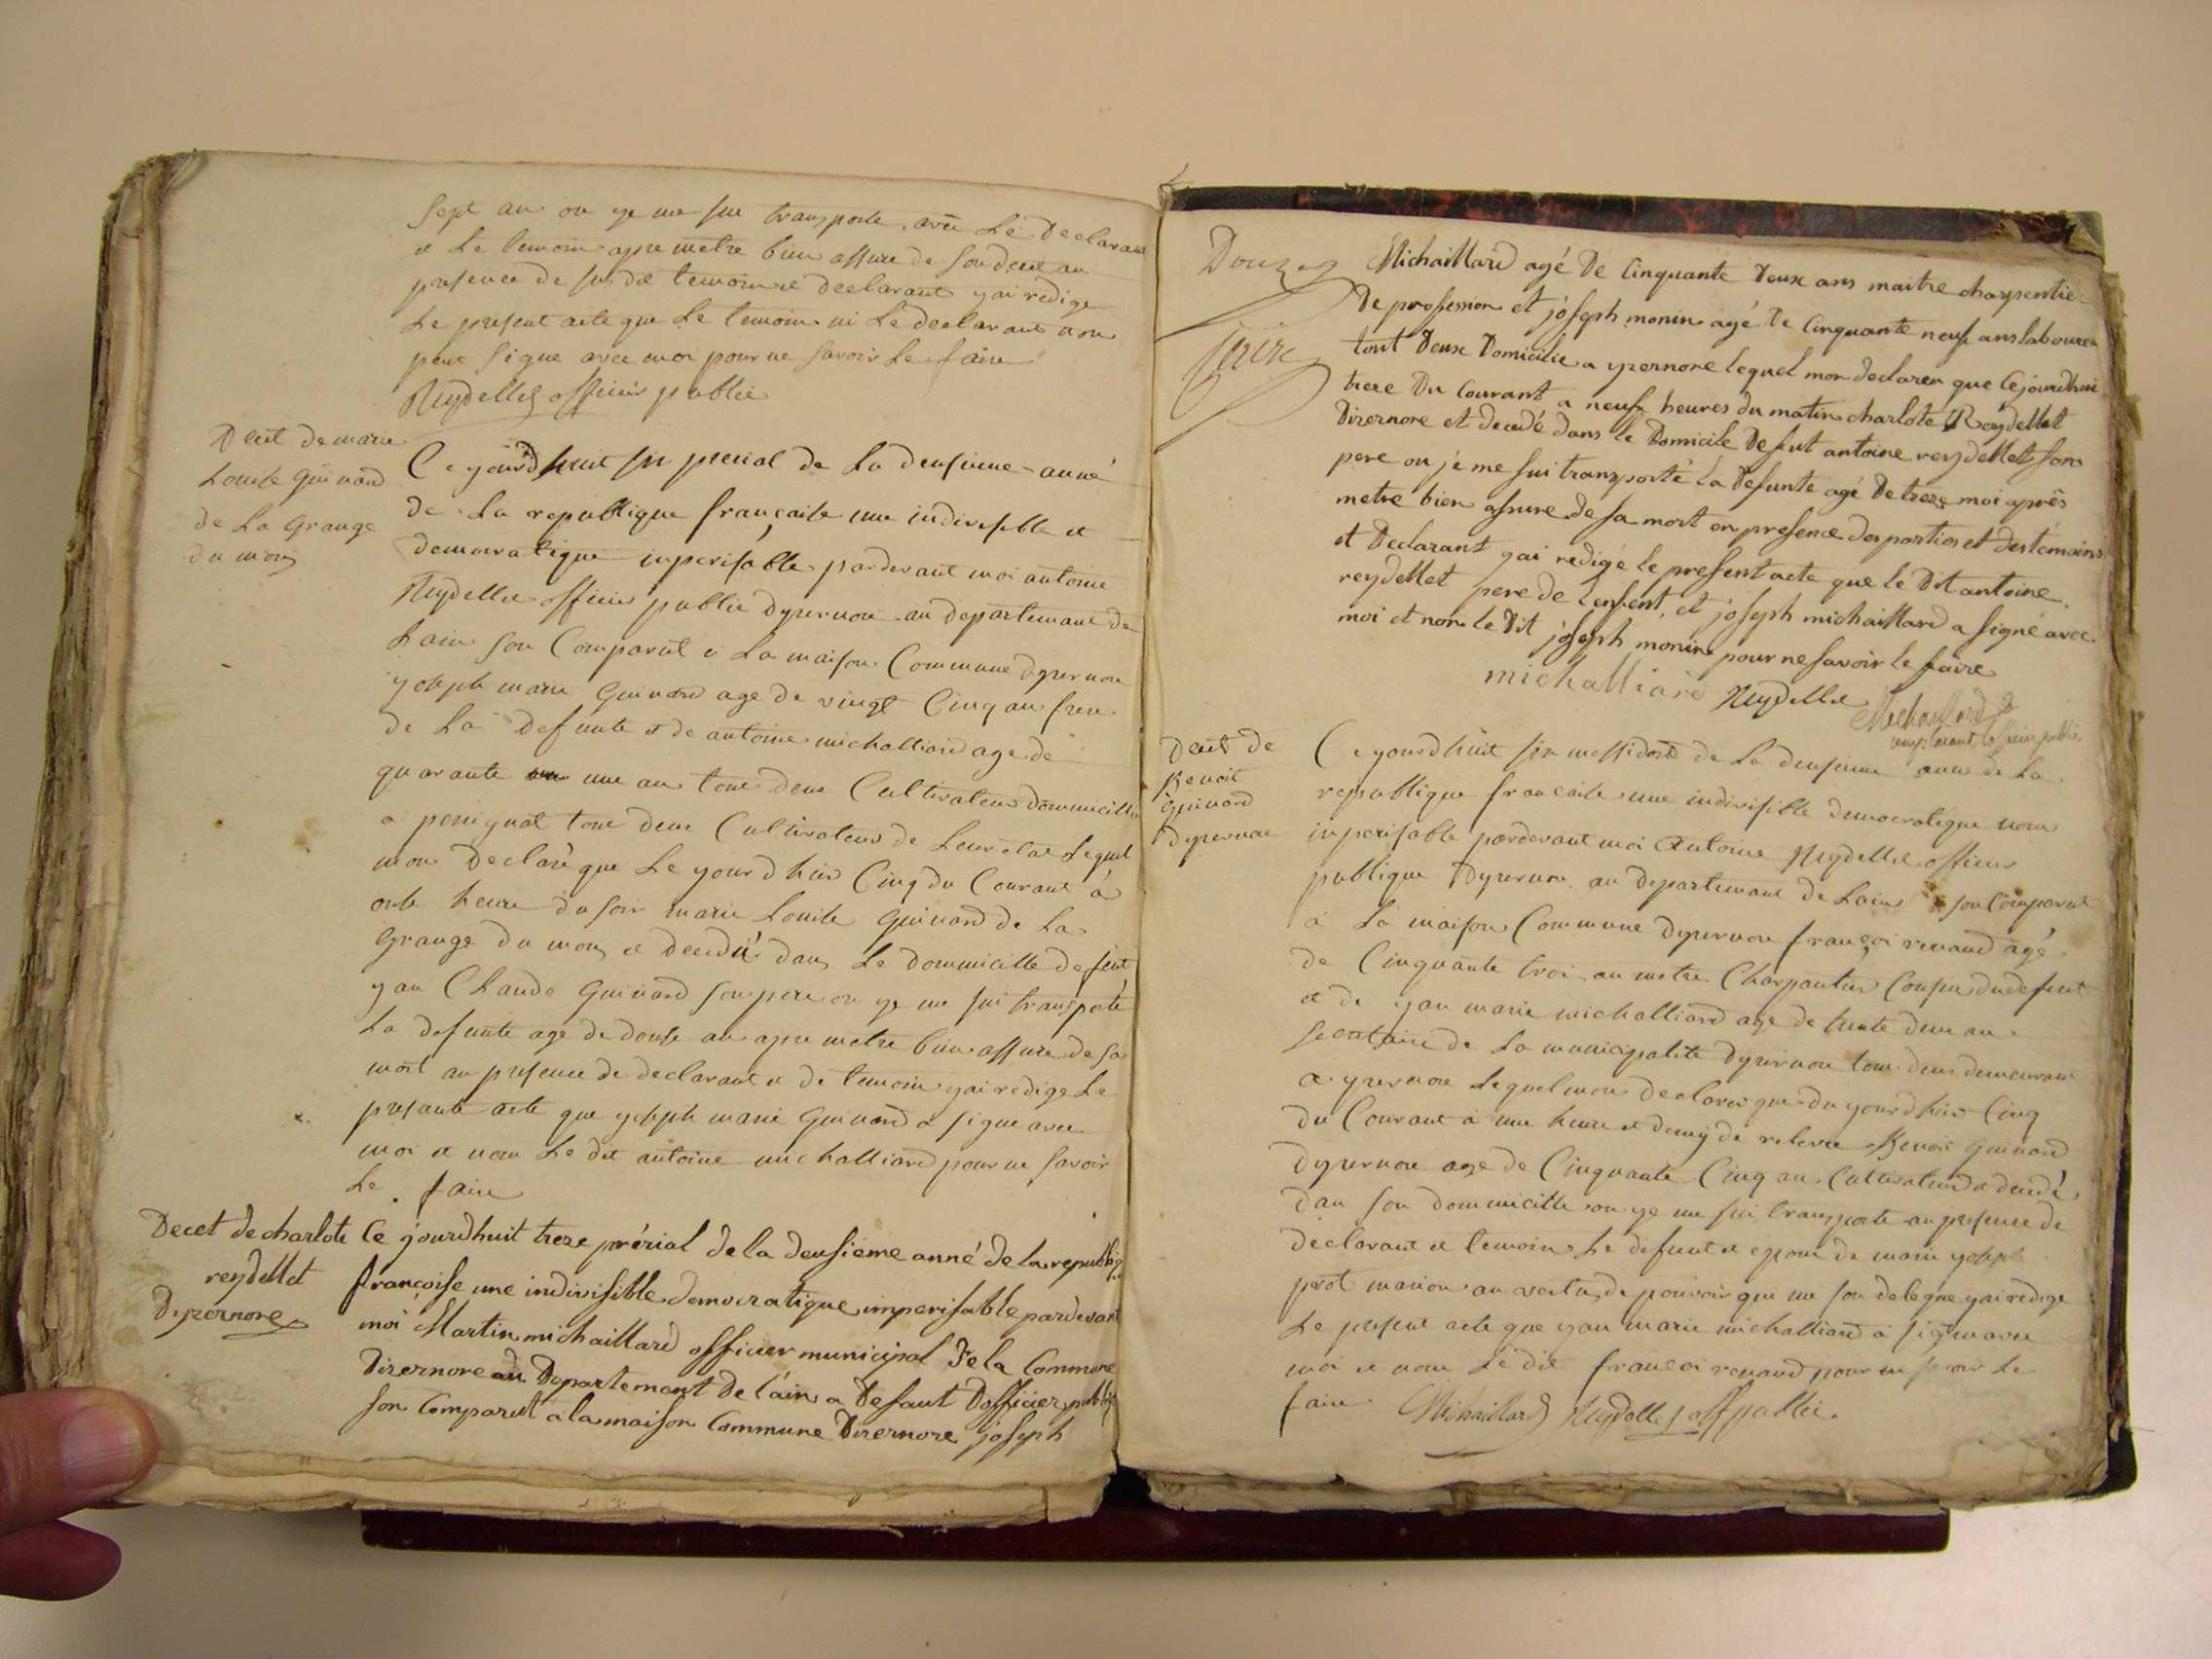 Sept an ou ge me sui transporte avec Le Declarant
et Le temoin apre metre bien assure de son decet au
presence de susdit temoin et declarant yai redige
Le present acte que Le temoin ni Le declarant non
peut signe avec moi pour ne savoir Le faire
Reydellet officier public
Decet de marie
Louise Guinard
de La Grange
du mon
Ce yourdhuit six prerial de La deusieme anné
de La republique françaile une indivisible et
democratique inperisable pardevant moi antoine
Reydellet officier public dyzernore au departemant de
Lain son Comparut a La maison Commune dyzernore
yoseph marie Guinard age de vingt Cinq an frere
de La defunte et de antoine michalliard age de
quarante une an tout deux Cultivateur dommicille
a perignat tout deux Cultivateur de Leur etat Lequel
mon Declaré que Le yourdhuis Cinq du Courant à
onse heure du soir marie Louise Guinard de La
Grange du mon et decedé dans Le dommicille de feut
yan Claude Guinard son pere ou ge me sui transporté
La defunte age de douse an apre metre bien assure de sa
mort au presence de declarant et de temoin yai redige Le
presante acte que yoseph marie Guinard a signe avec
moi et non Le dit antoine michalliard pour ne savoir
Le faire
Decet de charlote
reydellet
Dyzernore
Ce jourdhuit treze prérial de la deusieme anné de la republiq
françoise une indivisible democratique imperisable pardevant
moi Martin michaillard officier municipal De la Commune
Dizernore au Departement de l'ain a Defaut Dofficier public
son Comparut a la maison Commune Dizernore joseph
Douze
Michaillard agé De Cinquante Deux ans maitre charpentie
De profession et joseph monin agé De Cinquante neuf ans laboureu
tout Deux Domicilie a yzernore lequel mon declaren que Cejourdhui
treze Du Courant a neuf heures du matin charlote Reydellet
Dizernore et decedé dans le Domicile De fut antoine reydellet son
pere ou je me sui transporté La Defunte agé De treze moi après
metre bien assure de sa mort en presence des parties et des temoins
et Declarant yai redigé le present acte que le Dit antoine
reydellet pere de lenfent, et joseph michaillard a signé avec
moi et non le Dit joseph monin pour ne savoir le faire
michalliard Reydellet Michaillard
remplacant lofficier public
Decet de
Benoit
Guinard
Dyzernore
Ce yourdhuit six messidord de La deusieme anne de La
republique francaile une indivisible democratique nom
inperisable pardevant moi Antoine Reydellet officier
publique Dyzernore au departemant de Lain son Comparut
a La maison Commune dyzernore françoi renaud agé
de Cinquante troi an metre Charpantier Cousin du defeut
et de yan marie michalliard age de trente deux an
secretaire de La municipalite dyzernore tout deux demeurant
a yzernore Lequel mon declarer que du yourdhuis Cinq
du Courant à une heure et demy de relevée Benoit Guinard
Dyzernore age de Cinquante Cinq an Cultivateur et decedé
dan son dommicille ou ge me sui transporte au presence de
declarant et temoin Le defunt et epoux de marie yoseph
prot manion au vertu de pouvoir qui me son delegue yai redige
Le present acte que yan marie michalliard à signe avec
moi et non Le dit françoi renaud pour ne savoir Le
faire Michaillard Reydellet off public